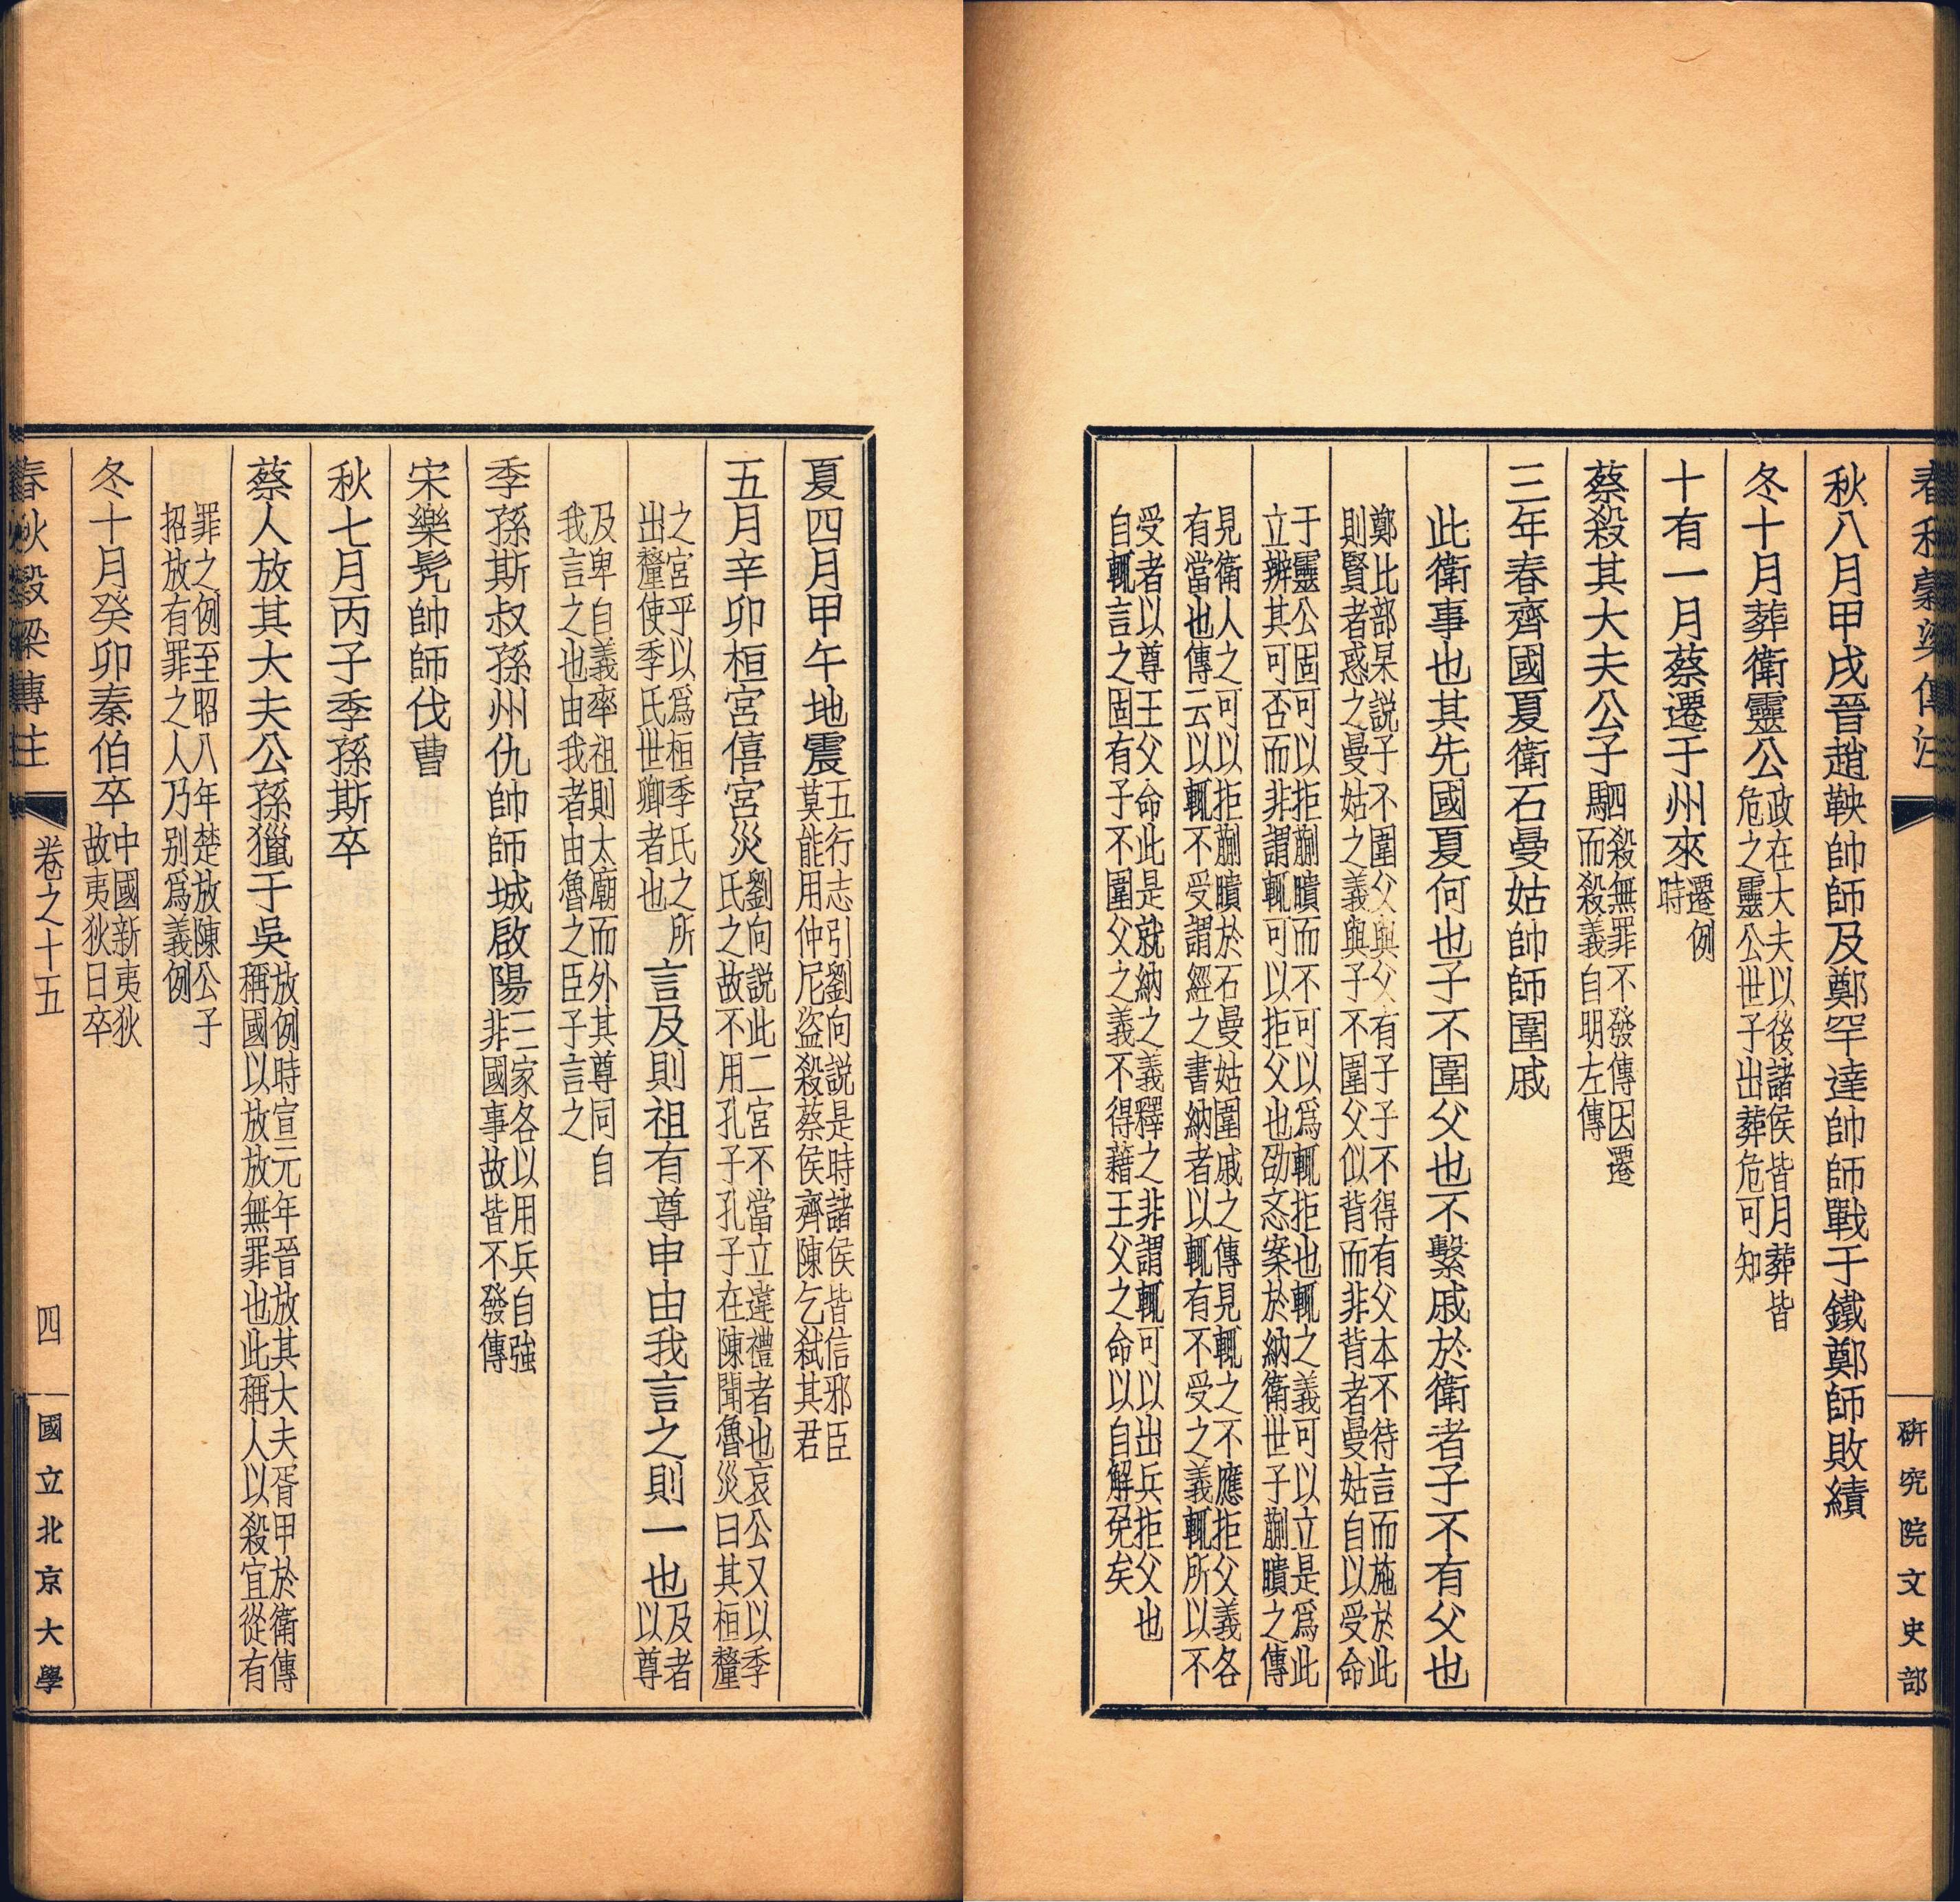 春秋穀梁傳注
研究院文史部
秋八月甲戌晉趙鞅帥師及鄭罕達帥師戰于鐵鄭師敗績
冬十月葬衛靈公政在大夫以後諸侯皆月葬皆
危之靈公世子出葬危可知
十有一月蔡遷于州來遷例
時
蔡殺其大夫公子駟殺無罪不發傳因遷
而殺義自明左傳
三年春齊國夏衛石曼姑帥師圍戚
此衛事也其先國夏何也子不圍父也不繫戚於衛者子不有父也
鄭比部杲説子不圍父與父有子子不得有父本不待言而施於此
則賢者惑之曼姑之義與子不圍父似背而非背者曼姑自以受命
于靈公固可以拒蒯聵而不可以爲輒拒也輒之義可以立是爲此
立辨其可否而非謂輒可以拒父也劭忞案於納衛世子蒯聵之傳
見衛人之可以拒蒯聵於石曼姑圍戚之傳見輒之不應拒父義各
有當也傳云以輒不受謂經之書納者以輒有不受之義輒所以不
受者以尊王父命此是就納之義釋之非謂輒可以出兵拒父也
自輒言之固有子不圍父之義不得藉王父之命以自解免矣
夏四月甲午地震五行志引劉向説是時諸侯皆信邪臣
莫能用仲尼盜殺蔡侯齊陳乞弑其君
五月辛卯桓宮僖宮災劉向説此二宮不當立違禮者也哀公又以季
氏之故不用孔子孔子在陳聞魯災曰其桓釐
之宮乎以爲桓季氏之所
出釐使季氏世卿者也
言及則祖有尊卑由我言之則一也及者
以尊
及卑自義率祖則太廟而外其尊同自
我言之也由我者由魯之臣子言之
季孫斯叔孫州仇帥師城啟陽三家各以用兵自強
非國事故皆不發傳
宋樂髠帥師伐曹
秋七月丙子季孫斯卒
蔡人放其大夫公孫獵于吳放例時宣元年晉放其大夫胥甲於衛傳
稱國以放放無罪也此稱人以殺宜從有
罪之例至昭八年楚放陳公子
招放有罪之人乃别爲義例
冬十月癸卯秦伯卒中國新夷狄
故夷狄日卒
春秋穀梁傳注
卷之十五
四
國立北京大學